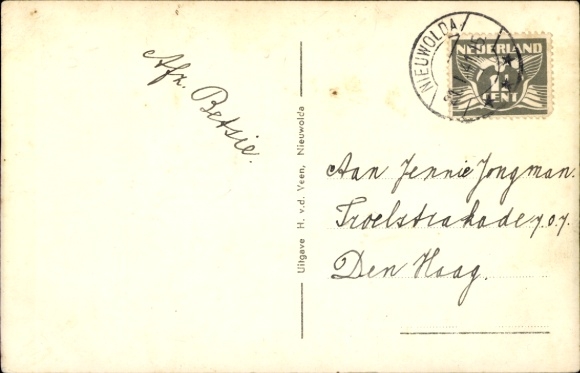 Afz. Betsie.
Uitgave H. v.d. Veen, Nieuwolda
NIEUWOLDA
NEDERLAND
CENT
Aan Jennie Jongman.
Troelstrakade 707.
Den Haag.